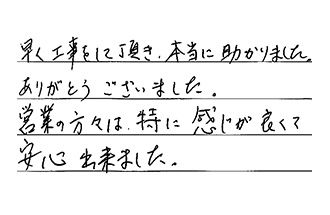 早く工事をして頂き、本当に助かりました。
ありがとうございました。
営業の方々は、特に感じが良くて
安心出来ました。